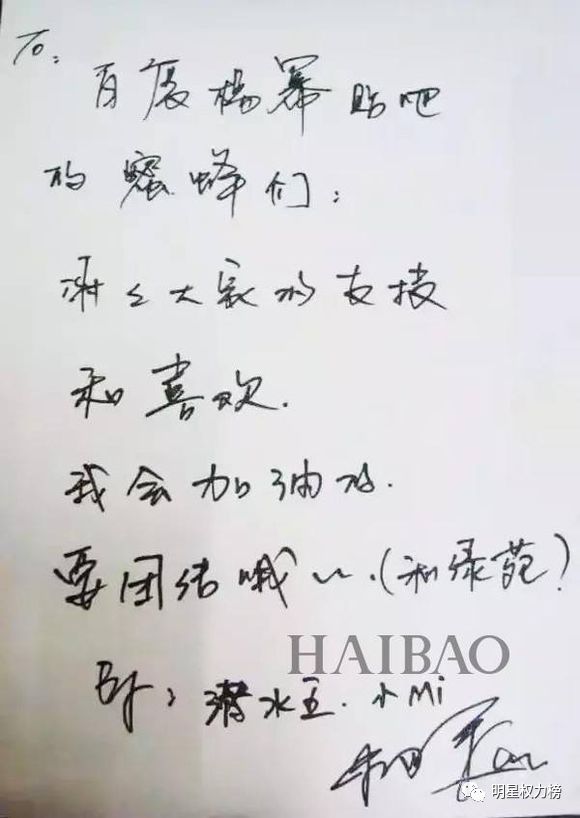 To:
百度杨幂贴吧
的蜜蜂们:
谢谢大家的支持
和喜欢.
我会加油的.
要团结哦~.(和绿苑)
HAIBAO
By: 潜水王.小Mi
杨幂
明星权力榜